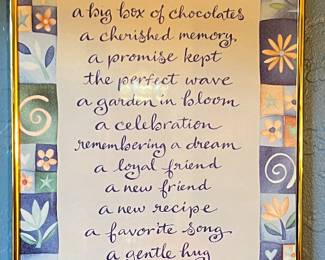 a big box of chocolates
a cherished memory,
a promise kept
the perfect wave
a garden in bloom
a celebration
remembering a dream
a loyal friend
a new friend
a new recipe
a favorite song
a gentle hug